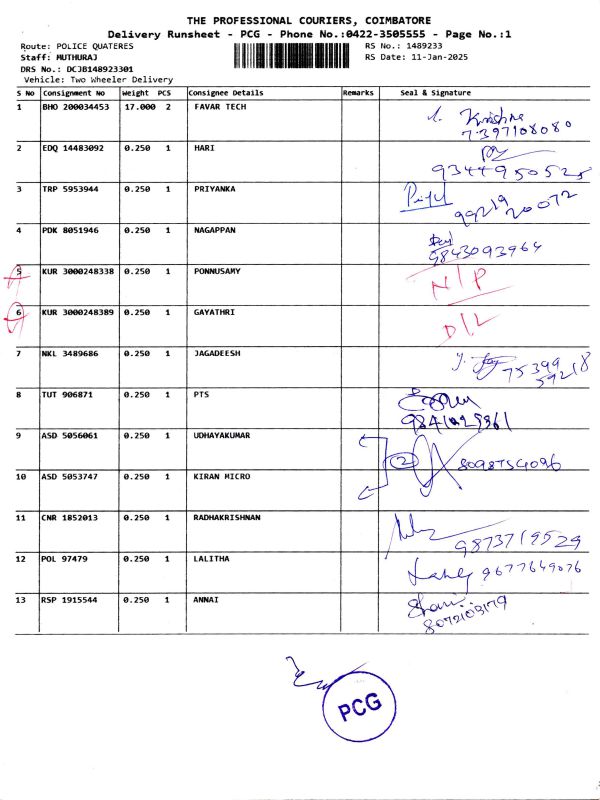 THE PROFESSIONAL COURIERS, COIMBATORE
Delivery Runsheet - PCG - Phone No.:0422-3505555 - Page No.:1
Route: POLICE QUATERES RS No.: 1489233
Staff: MUTHURAJ RS Date: 11-Jan-2025
DRS No.: DCJB148923301
Vehicle: Two Wheeler Delivery
S No Consignment No Weight PCS Consignee Details Remarks Seal & Signature
1 BHO 200034453 17.000 2 FAVAR TECH Krishna
7397108080
2 EDQ 14483092 0.250 1 HARI
9344950525
3 TRP 5953944 0.250 1 PRIYANKA
99219 20072
4 PDK 8051946 0.250 1 NAGAPPAN
9843093964
5 KUR 3000248338 0.250 1 PONNUSAMY N/P
6 KUR 3000248389 0.250 1 GAYATHRI D/L
7 NKL 3489686 0.250 1 JAGADEESH 75399
59218
8 TUT 906871 0.250 1 PTS
9 ASD 5056061 0.250 1 UDHAYAKUMAR
2 8098754096
10 ASD 5053747 0.250 1 KIRAN MICRO
11 CNR 1852013 0.250 1 RADHAKRISHNAN
9873719529
12 POL 97479 0.250 1 LALITHA 9677649076
13 RSP 1915544 0.250 1 ANNAI
8072103179
PCG